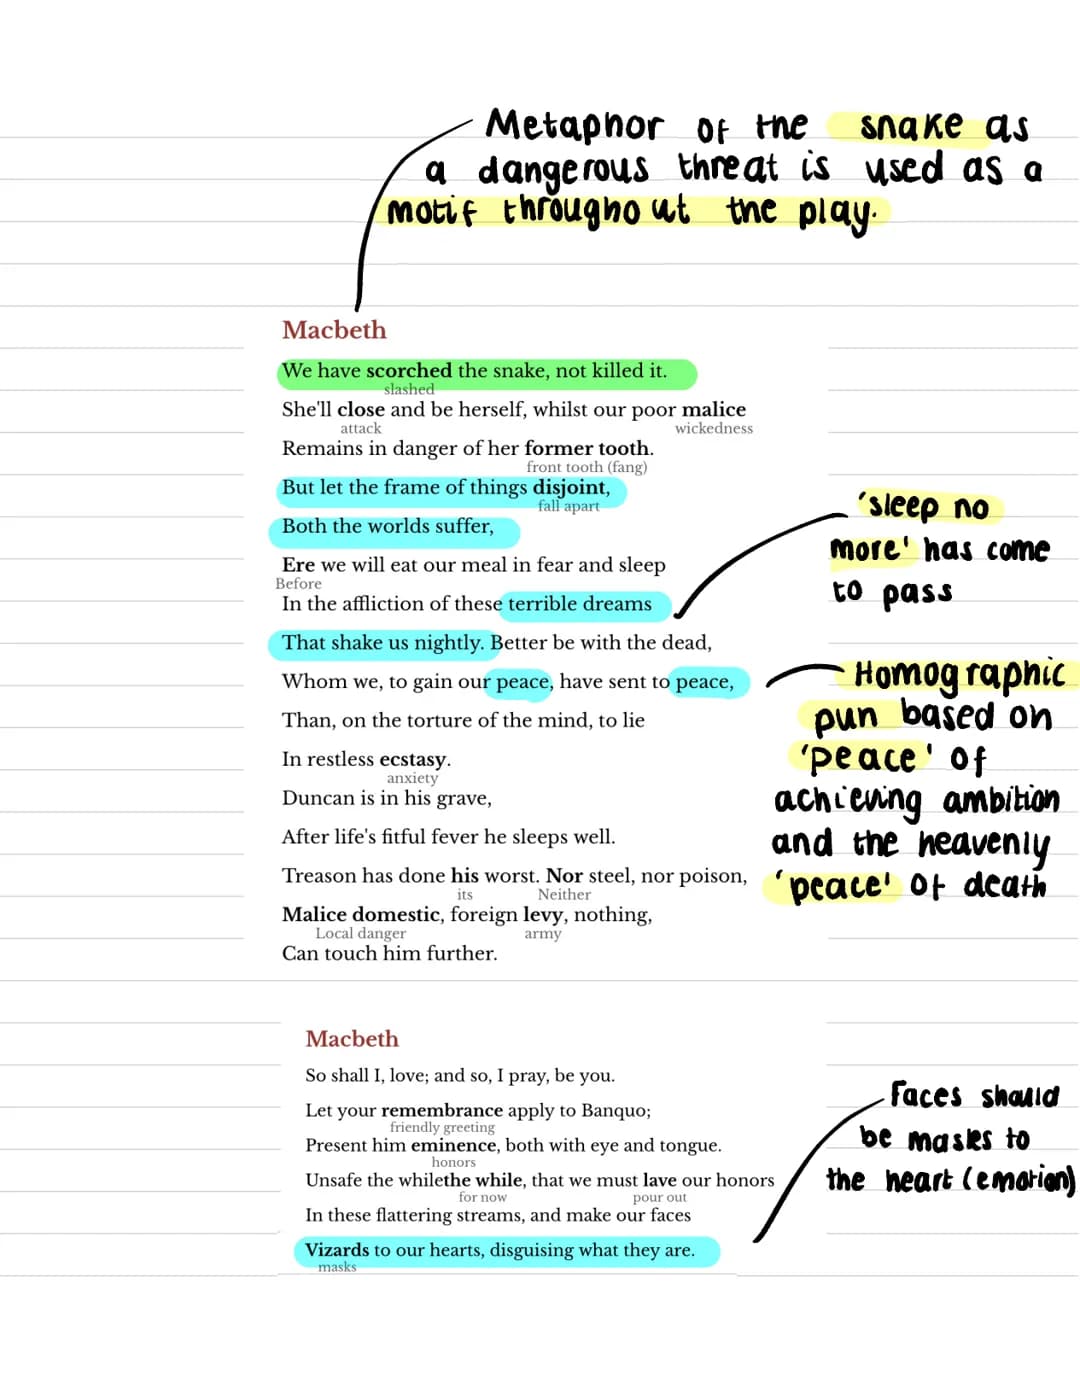 Metaphor of the snake as
a dangerous threat is used as a
motif throughout the play.
Macbeth
We have scorched the snake, not killed it.
slashed
She'll close and be herself, whilst our poor malice
attack wickedness
Remains in danger of her former tooth.
front tooth (fang)
But let the frame of things disjoint,
fall apart
Both the worlds suffer,
Ere we will eat our meal in fear and sleep
Before
In the affliction of these terrible dreams
That shake us nightly. Better be with the dead,
Whom we, to gain our peace, have sent to peace,
Than, on the torture of the mind, to lie
In restless ecstasy.
anxiety
Duncan is in his grave,
After life's fitful fever he sleeps well.
Treason has done his worst. Nor steel, nor poison,
its Neither
Malice domestic, foreign levy, nothing,
Local danger army
Can touch him further.
'sleep no
more' has come
to pass
Homographic
pun based on
'peace' of
achieving ambition
and the heavenly
'peace' of death
Macbeth
So shall I, love; and so, I pray, be you.
Let your remembrance apply to Banquo;
friendly greeting
Present him eminence, both with eye and tongue.
honors
Unsafe the whilethe while, that we must lave our honors
for now pour out
In these flattering streams, and make our faces
Vizards to our hearts, disguising what they are.
masks
Faces should
be masks to
the heart (emotion)